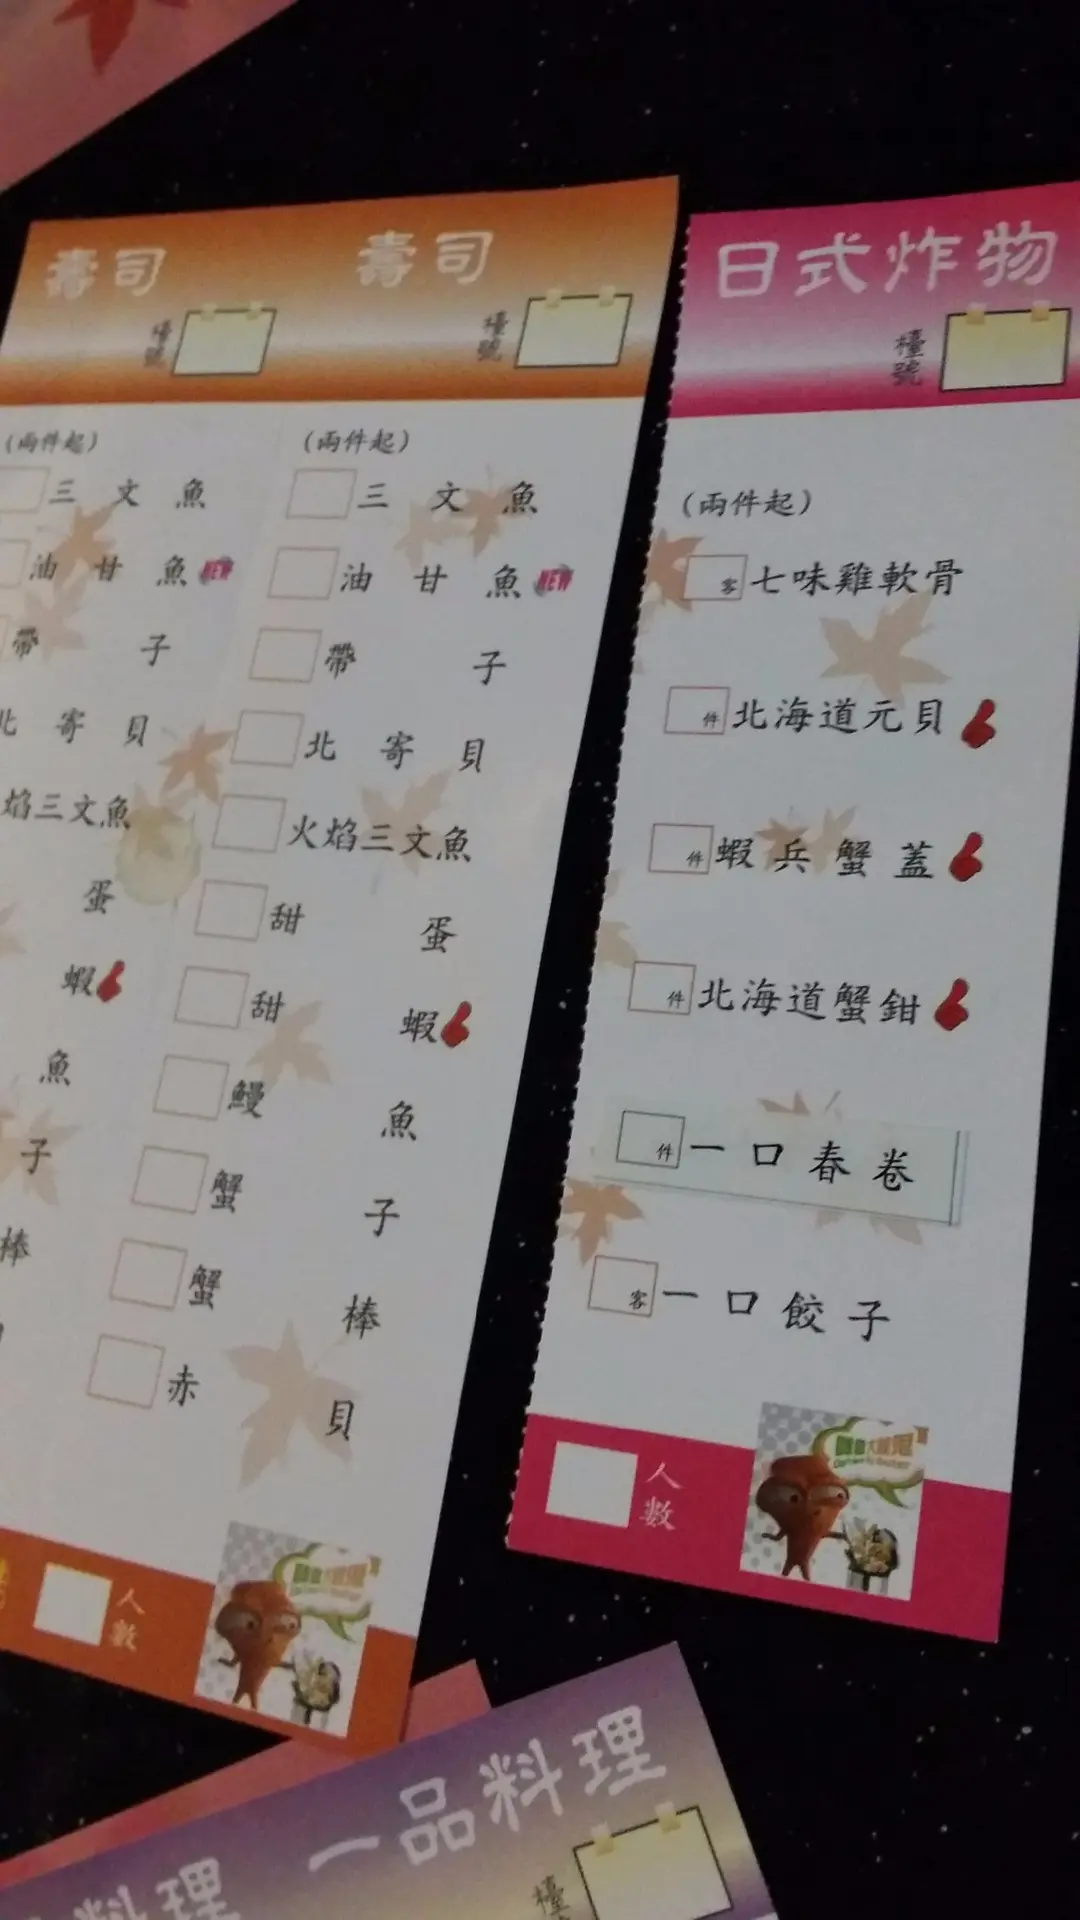 壽司
檯號
(兩件起)
三文魚
油甘魚 NEW
帶子
北寄貝
焰三文魚
蛋
蝦
魚
子
棒
人數
壽司
檯號
(兩件起)
三文魚
油甘魚 NEW
帶子
北寄貝
火焰三文魚
甜蛋
甜蝦
鰻魚
蟹子
蟹棒
赤貝
日式炸物
檯號
(兩件起)
客 七味雞軟骨
件 北海道元貝
件 蝦兵蟹蓋
件 北海道蟹鉗
件 一口春卷
客 一口餃子
人數
料理
一品料理
檯號